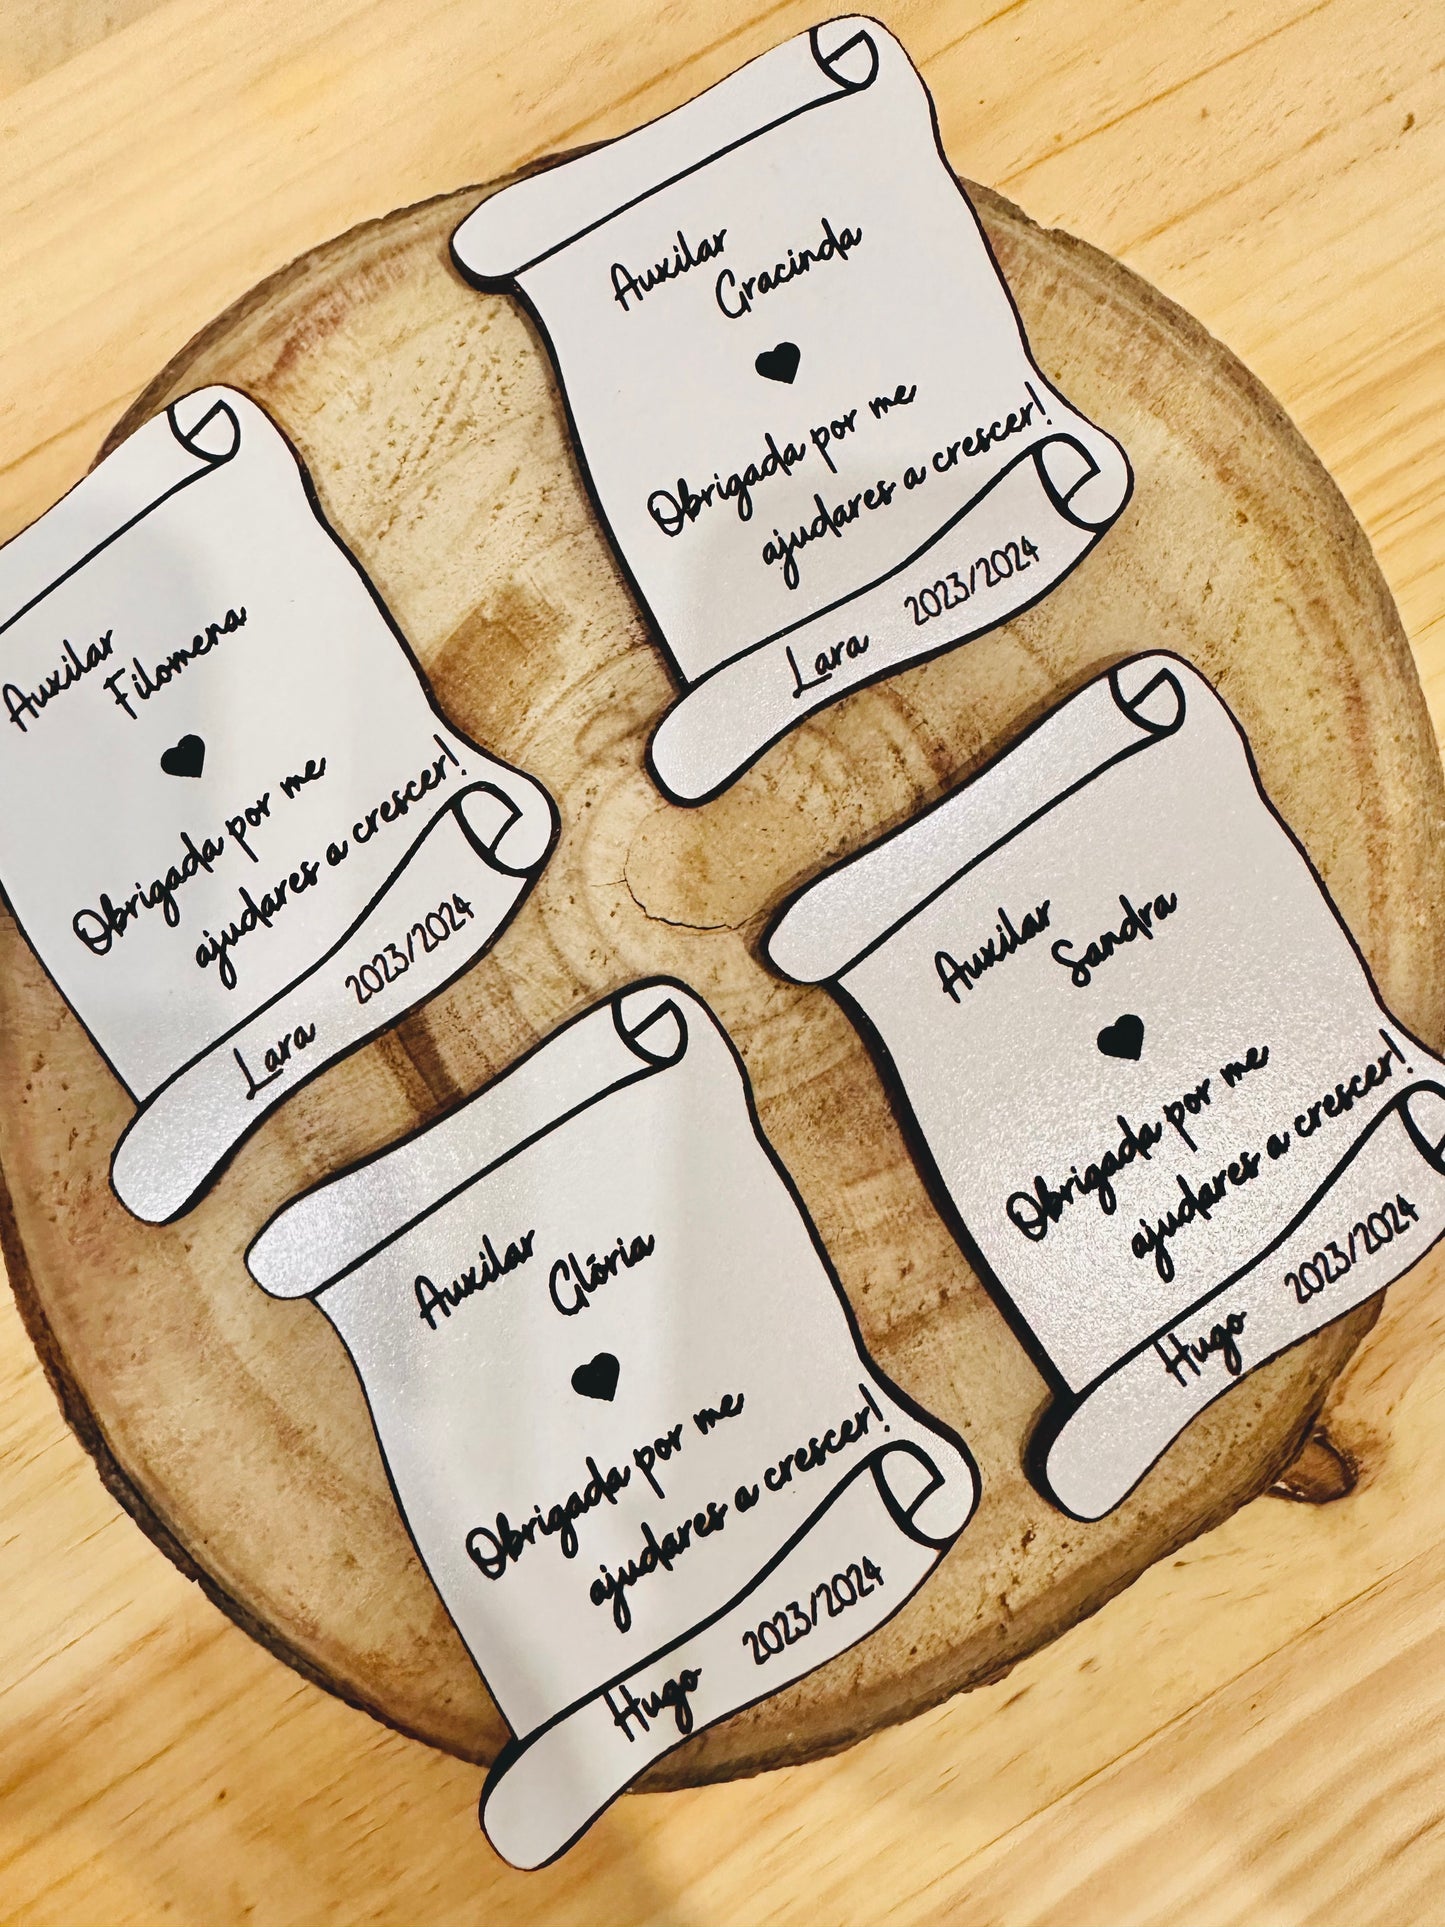 Auxilar
Gracinda
Obrigada por me
ajudares a crescer!
Lara 2023/2024
Auxilar
Filomena
Obrigada por me
ajudares a crescer!
Lara 2023/2024
Auxilar
Sandra
Obrigada por me
ajudares a crescer!
Hugo 2023/2024
Auxilar
Glória
Obrigada por me
ajudares a crescer!
Hugo 2023/2024